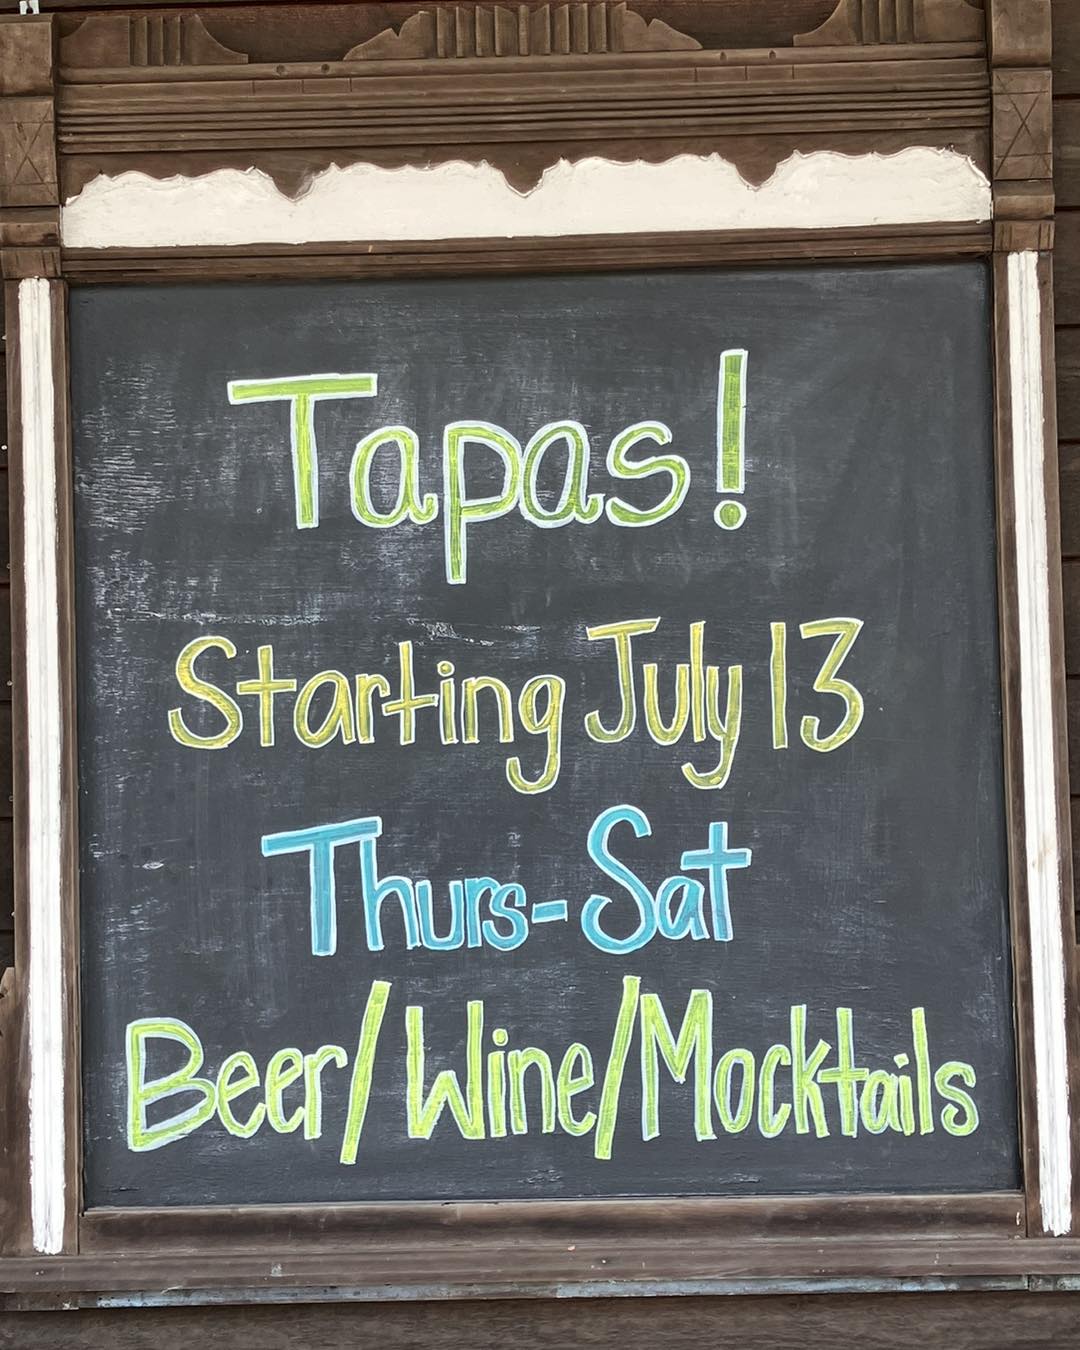 Tapas!
Starting July 13
Thurs-Sat
Beer/Wine/Mocktails